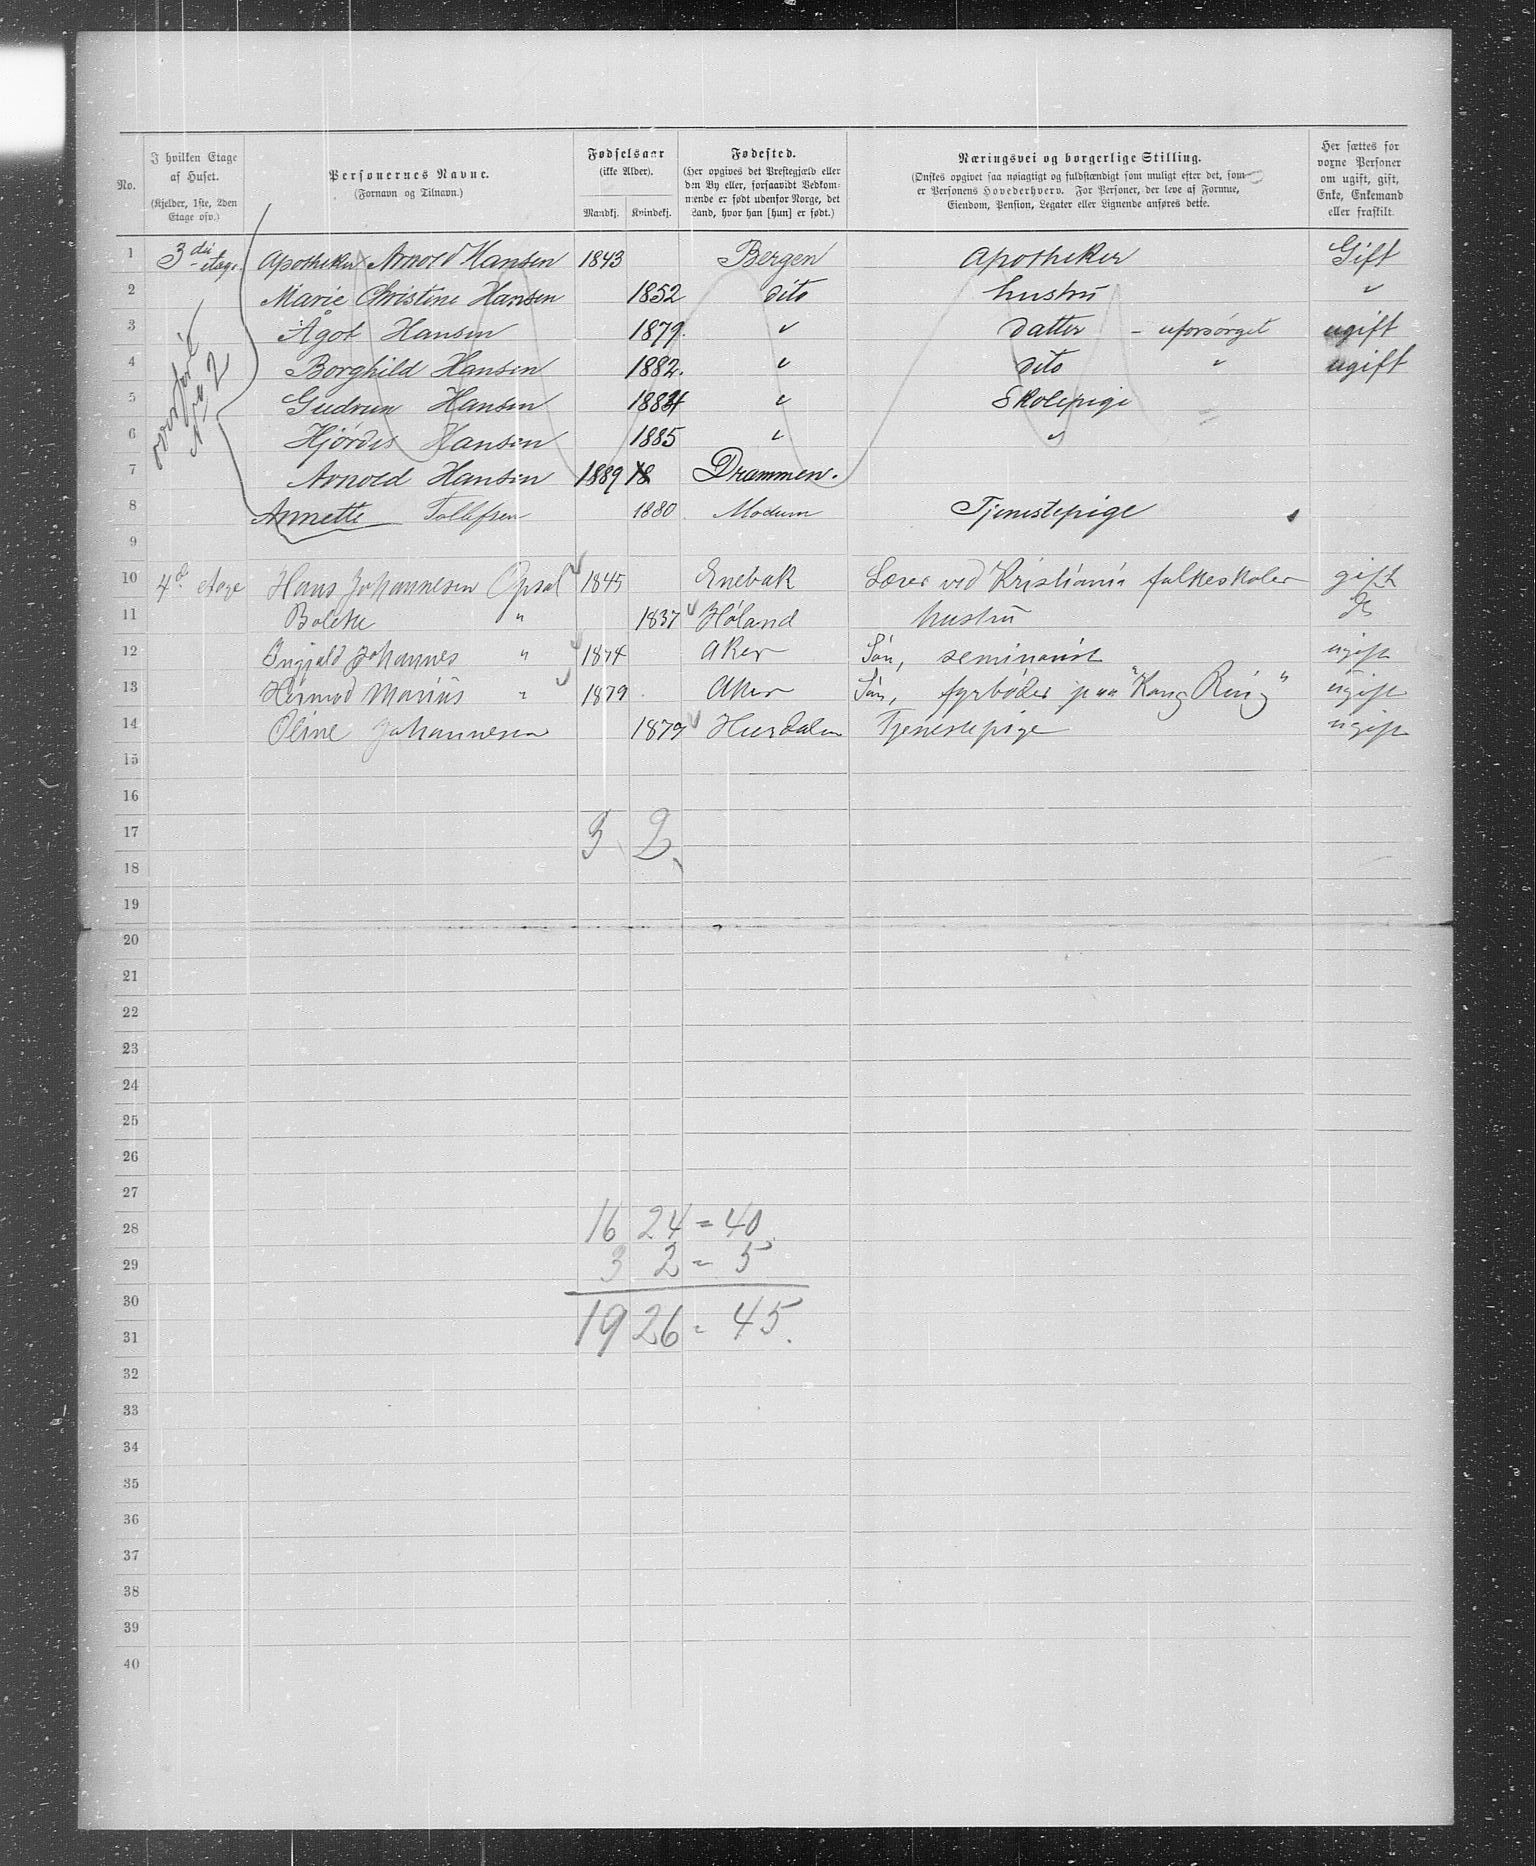 No.
I hvilken Etage af Huset.
(Kjelder, 1ste, 2den Etage osv.)
Personernes Navne.
(Fornavn og Tilnavn.)
Fødselsaar
(ikke Alder).
Mandkj. Kvindekj.
Fødested.
(Her opgives det Prestegjæld eller den By eller, forsaavidt Vedkommende er født udenfor Norge, det Land, hvor han [hun] er født.)
Næringsvei og borgerlige Stilling.
(Ønskes opgivet saa nøiagtigt og fuldstændigt som muligt efter det, som er Personens Hovederhverv. For Personer, der leve af Formue, Eiendom, Pension, Legater eller Lignende anføres dette.
Her sættes for voxne Personer om ugift, gift, Enke, Enkemand eller fraskilt.
1 3die etage. Apotheker Arnold Hansen 1843 Bergen Apotheker Gift
2 Marie Christine Hansen 1852 dito hustru "
3 Ågot Hansen 1879. " datter - uforsørget ugift
4 Borghild Hansen 1882. " dito " ugift
5 Gudrun Hansen 1884 " Skolepige
6 Hjørdis Hansen 1885 " "
7 Arnold Hansen 1889 18 Drammen.
8 Annette Tollefsen 1880 Modum Tjenestepige
overført No 2
9
10 4d etage Hans Johannesen Opsal 1845 Enebak Lærer ved Kristiania folkeskoler gift
11 Bolette " 1837 Høland hustru do
12 Ingjald Johannes " 1874 Aker Søn, seminarist ugift
13 Hermod Marius " 1879 Aker Søn, fyrbøder paa "Kong Ring" ugift
14 Oline Johannesen 1879 Hurdalen Tjenestepige ugift
15
16
17 3 2
18
19
20
21
22
23
24
25
26
27
28 16 24 = 40
29 3 2 = 5
30
31 19 26 = 45.
32
33
34
35
36
37
38
39
40